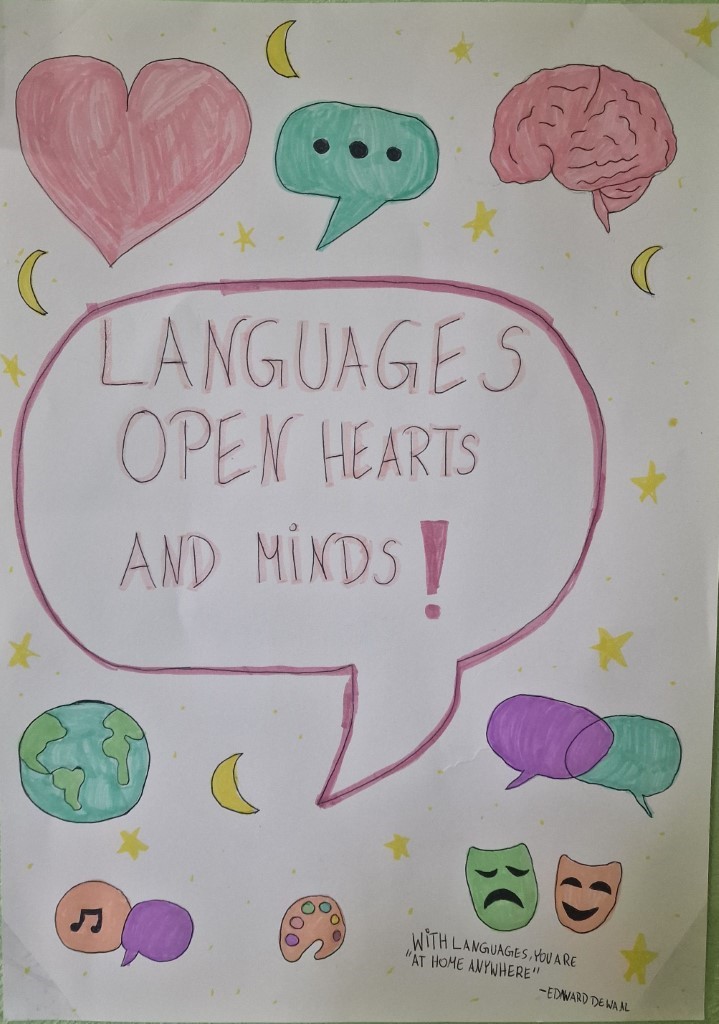 LANGUAGES
OPEN HEARTS
AND MINDS!
WITH LANGUAGES, YOU ARE
"AT HOME ANYWHERE"
-EDWARD DE WAAL